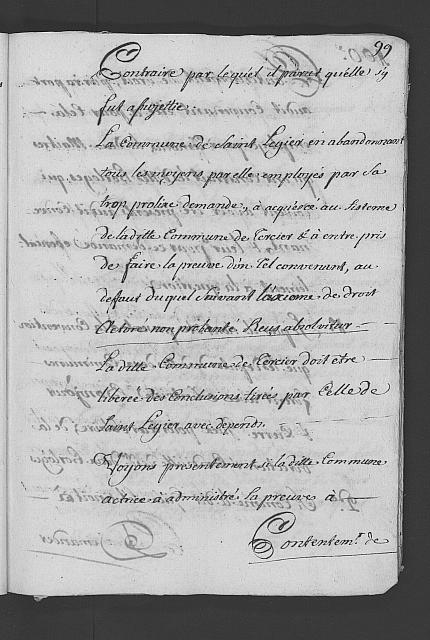 99
Contraire par lequel il parut quélle s'y
fut assojettie.
La Commune de Saint Legier en abandonnant
tous les moyens par elle employés par Sa
trop prolixe demande, à acquiécé au Sisteme
de la ditte Commune de Cercier & à entre pris
de faire la preuve d'un tel convenant, au
defaut du quel suivant l'axiome de droit
Actore non probante Reus absolvitur
La ditte Commune de Cercier doit etre
liberée des Conclusions tirées par Celle de
Saint Legier avec depends.
Voyons presentement si la ditte Commune
actrice à administré la preuve à
Contentem.t de